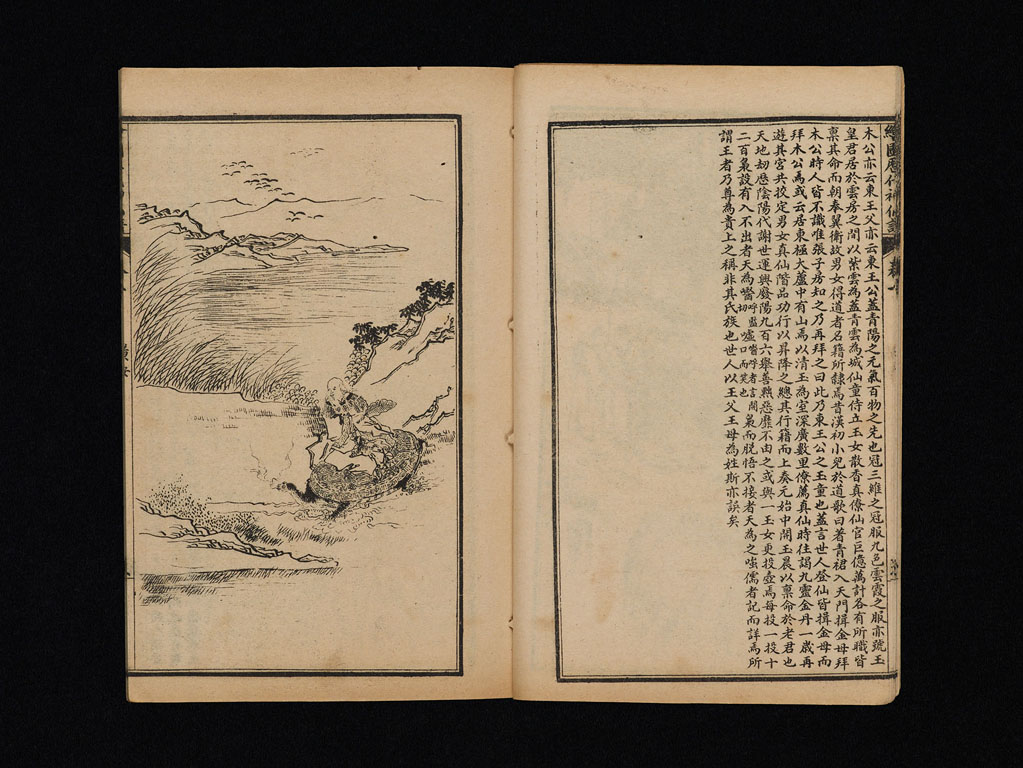 繪圖歷代神仙譜
木公亦云東王父亦云東王公蓋青陽之元氣百物之先也冠三維之冠服九色雲霞之服亦號玉
皇君居於雲房之間以紫雲為蓋青雲為城仙童侍立玉女散香真僚仙官巨億萬計各有所職皆
稟其命而朝奉翼衛故男女得道者名籍所隸焉昔漢初小兒於道歌曰著青裙入天門揖金母拜
木公時人皆不識唯張子房知之乃再拜之曰此乃東王公之玉童也蓋言世人登仙皆揖金母而
拜木公焉或云居東極大蘆中有山焉以清玉為室深廣數里僚薦真仙時往謁九靈金丹一歲再
遊其宮共挍定男女真仙階品功行以昇降之總其行籍而上奏元始中開玉晨以稟命於老君也
天地刧歷陰陽代謝世運興廢陽九百六舉善黜惡靡不由之或與一玉女更投壺焉每投一投十
二百梟設有入不出者天為囓呼監切噓囓呼者言開口而笑也梟而脫悟不接者天為之嗤儒者記而詳焉所
謂王者乃尊為貴上之稱非其氏族也世人以王父王母為姓斯亦誤矣